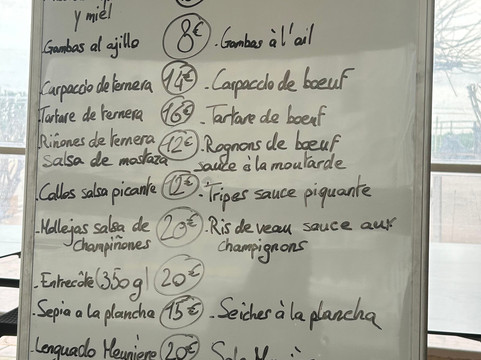 y miel
- Gambas al ajillo 8€ - Gambas à l'ail
- Carpaccio de ternera 14€ - Carpaccio de boeuf
- Tartare de ternera 16€ - Tartare de boeuf
- Riñones de ternera 12€ - Rognons de boeuf
salsa de mostaza sauce à la moutarde
- Callos salsa picante 12€ - Tripes sauce piquante
- Mollejas salsa de 20€ - Ris de veau sauce aux
champiñones champignons
- Entrecôte (350g) 20€
- Sepia a la plancha 15€ - Seiches à la plancha
- Lenguado Meuniere 20€